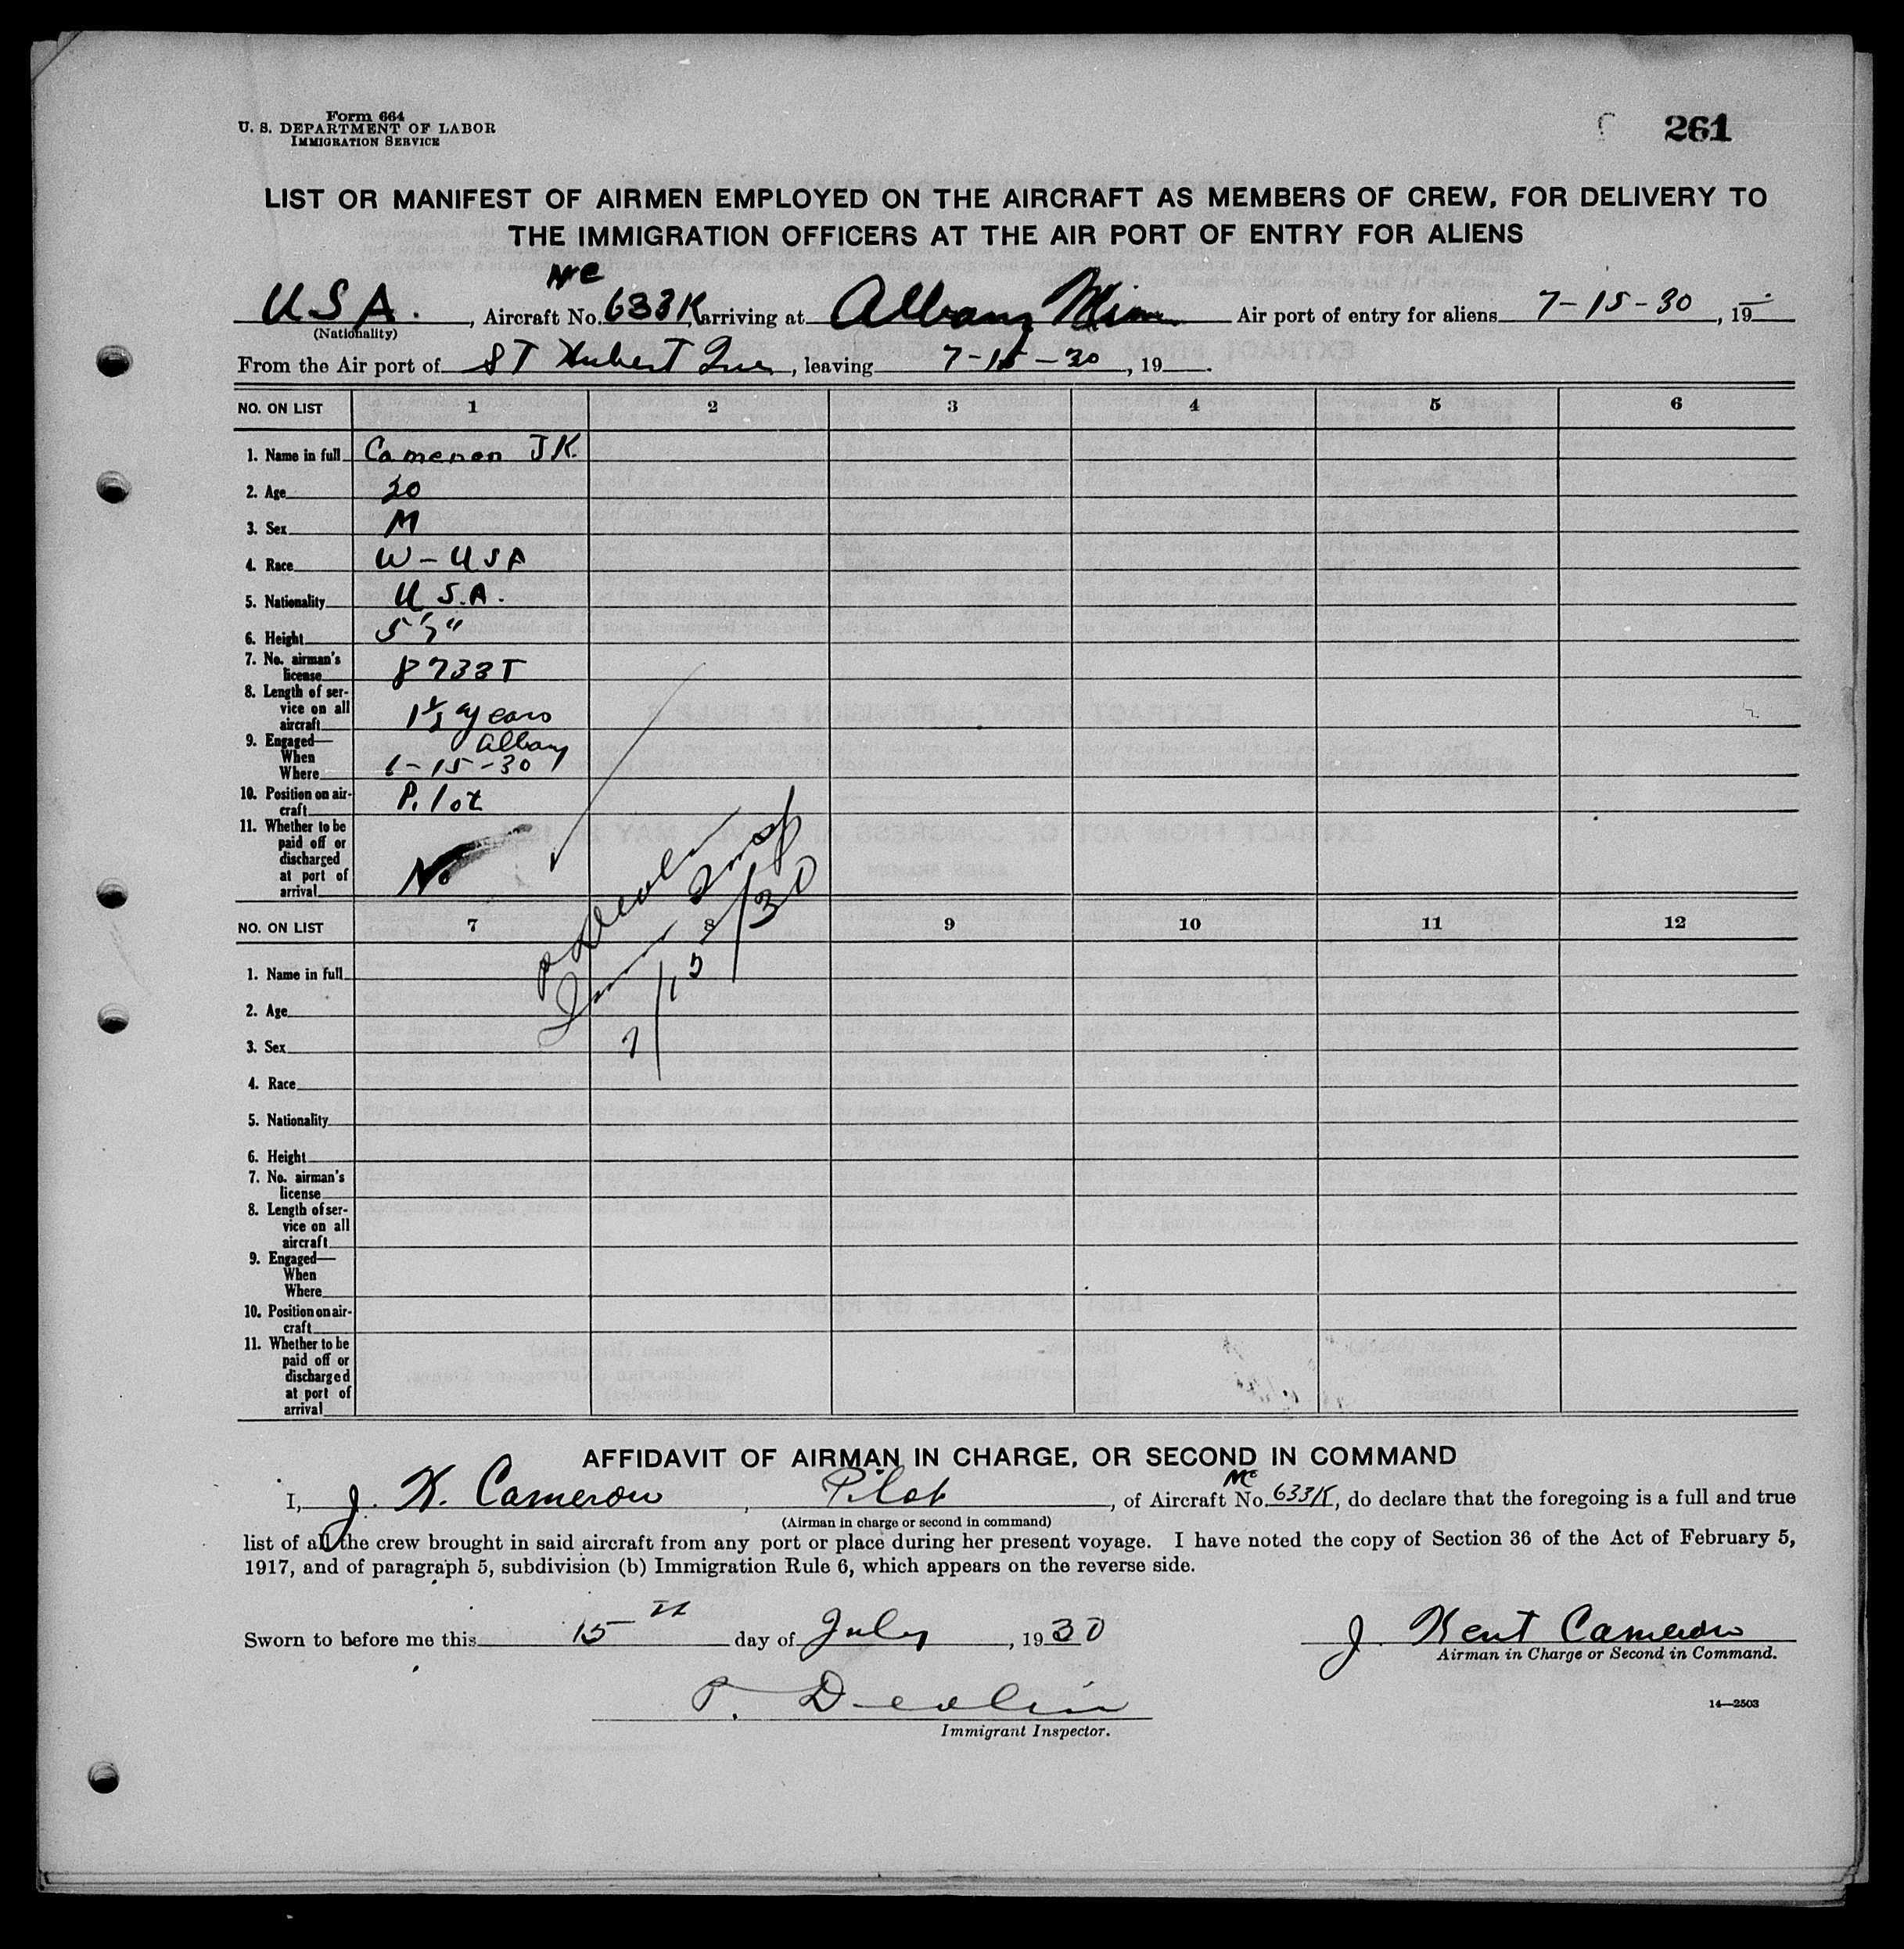 Form 664
U. S. DEPARTMENT OF LABOR
IMMIGRATION SERVICE
261
LIST OR MANIFEST OF AIRMEN EMPLOYED ON THE AIRCRAFT AS MEMBERS OF CREW, FOR DELIVERY TO
THE IMMIGRATION OFFICERS AT THE AIR PORT OF ENTRY FOR ALIENS
NC
USA. , Aircraft No. 633K, arriving at Albany Air port of entry for aliens 7-15-30, 19
(Nationality)
From the Air port of ST Hubert Que, leaving 7-15-30, 19 .
NO. ON LIST 1 2 3 4 5 6
1. Name in full Cameron JK.
2. Age
3. Sex M
4. Race W-USA
5. Nationality U.S.A.
6. Height 5'7"
7. No. airman's
license 8733T
8. Length of ser-
vice on all
aircraft 1½ years
9. Engaged— Albany
When
Where -15-30
10. Position on air-
craft Pilot
11. Whether to be
paid off or
discharged
at port of
arrival No
P Devlin
Imm Insp
7/15/30
NO. ON LIST 7 8 9 10 11 12
1. Name in full
2. Age
3. Sex
4. Race
5. Nationality
6. Height
7. No. airman's
license
8. Length of ser-
vice on all
aircraft
9. Engaged—
When
Where
10. Position on air-
craft
11. Whether to be
paid off or
discharged
at port of
arrival
AFFIDAVIT OF AIRMAN IN CHARGE, OR SECOND IN COMMAND
NC
I, J. K. Cameron, Pilot, of Aircraft No. 633K, do declare that the foregoing is a full and true
(Airman in charge or second in command)
list of all the crew brought in said aircraft from any port or place during her present voyage. I have noted the copy of Section 36 of the Act of February 5,
1917, and of paragraph 5, subdivision (b) Immigration Rule 6, which appears on the reverse side.
Sworn to before me this 15th day of July, 1930 J. Kent Cameron
Airman in Charge or Second in Command.
P. Devlin
Immigrant Inspector.
14—2503